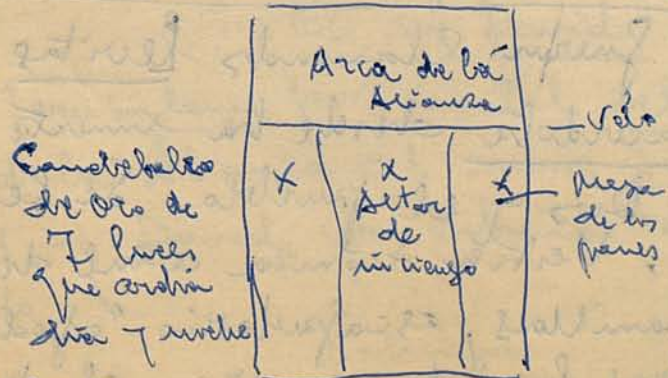 Arca de la
Alianza
Velo
Candelabro
de oro de
7 luces
que ardia
dia y noche
X
X
Altar
de
incienso
X
mesa
de los
panes